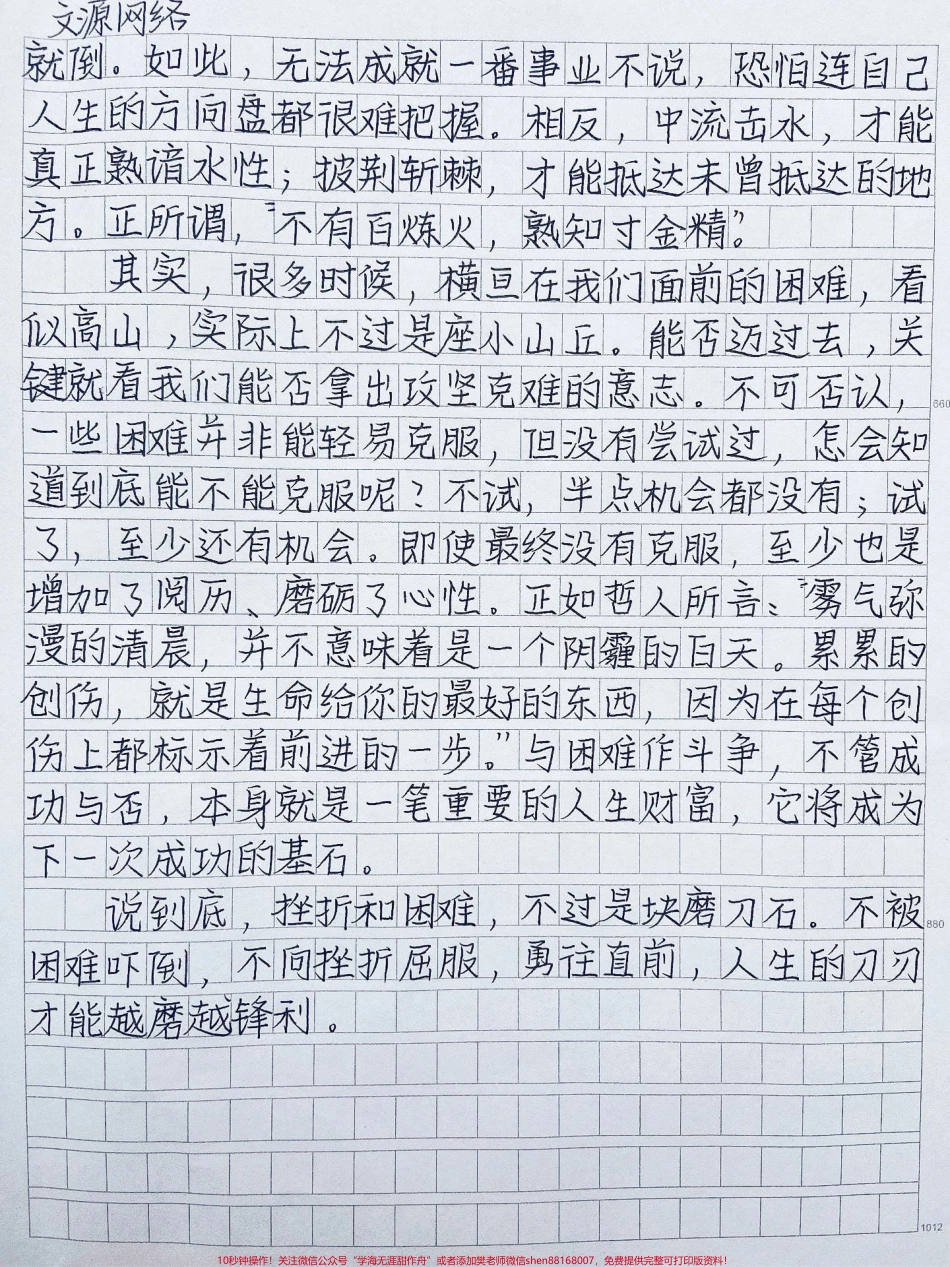 文源网络
就倒。如此，无法成就一番事业不说，恐怕连自己
人生的方向盘都很难把握。相反，中流击水，才能
真正熟谙水性；披荆斩棘，才能抵达未曾抵达的地
方。正所谓，“不有百炼火，熟知寸金精”。
其实，很多时候，横亘在我们面前的困难，看
似高山，实际上不过是座小山丘。能否迈过去，关
键就看我们能否拿出攻坚克难的意志。不可否认，
660
一些困难并非能轻易克服，但没有尝试过，怎会知
道到底能不能克服呢？不试，半点机会都没有；试
了，至少还有机会。即使最终没有克服，至少也是
增加了阅历、磨砺了心性。正如哲人所言：“雾气弥
漫的清晨，并不意味着是一个阴霾的白天。累累的
创伤，就是生命给你的最好的东西，因为在每个创
伤上都标示着前进的一步。”与困难作斗争，不管成
功与否，本身就是一笔重要的人生财富，它将成为
下一次成功的基石。
说到底，挫折和困难，不过是块磨刀石。不被
880
困难吓倒，不向挫折屈服，勇往直前，人生的刀刃
才能越磨越锋利。
1012
10秒钟操作！关注微信公众号“学海无涯甜作舟”或者添加樊老师微信shen88168007，免费提供完整可打印版资料！